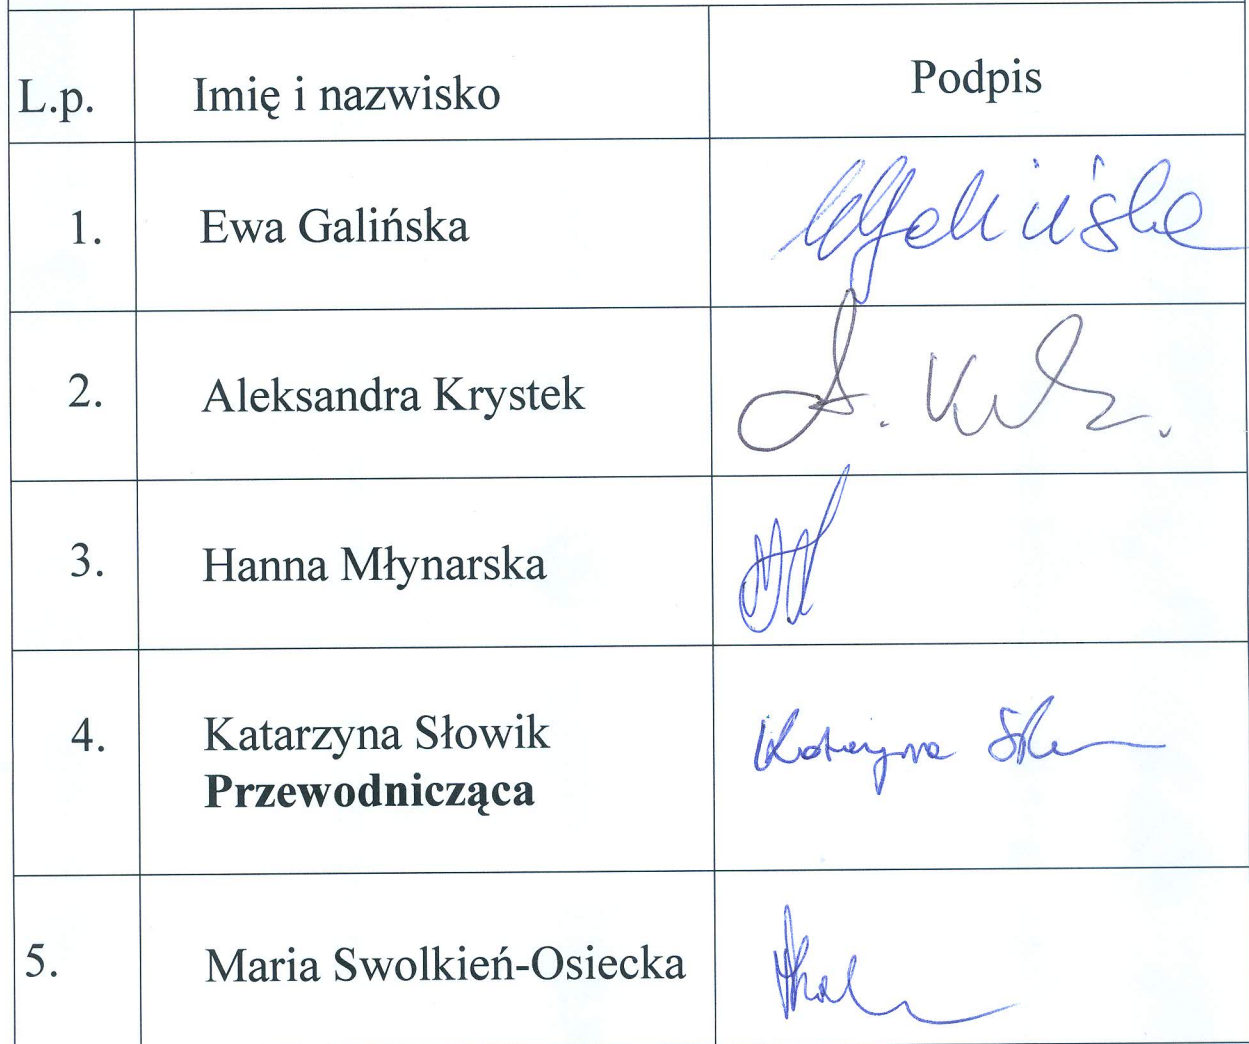 L.p. Imię i nazwisko Podpis
1. Ewa Galińska
2. Aleksandra Krystek A.
3. Hanna Młynarska
4. Katarzyna Słowik Katarzyna
Przewodnicząca
5. Maria Swolkień-Osiecka